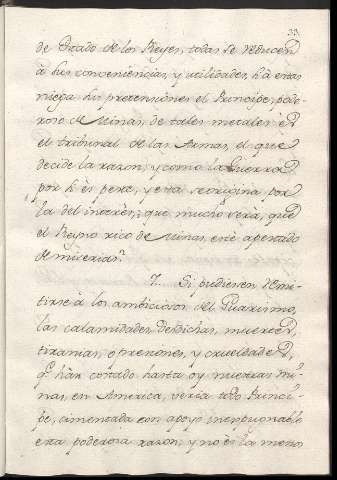 33.
de Estado de los Reyes, todas se reducen
à sus conveniencias, y utilidades, hà estas
niega sus pretensiones el Principe, pode
roso de Minas, de tales metales es
el tribunal de las Armas, el que
decide la razon, y como la Guerra
por h es peste, y esta se origina por
la del interès, que mucho verà, que
el Reyno rico de Minas, estè apestado
de miserias.
7. Si pudiesen remi
tirse à los ambiciosos del Guarismo,
las calamidades, desdichas, muertes,
tiranias, opreciones, y crueldades,
q.e hàn costado hasta oy nuestras Mi
nas, en America, veria todo Princi
pe, cimentada con apoyo inexpugnable
esta poderosa razon; y no es la menos